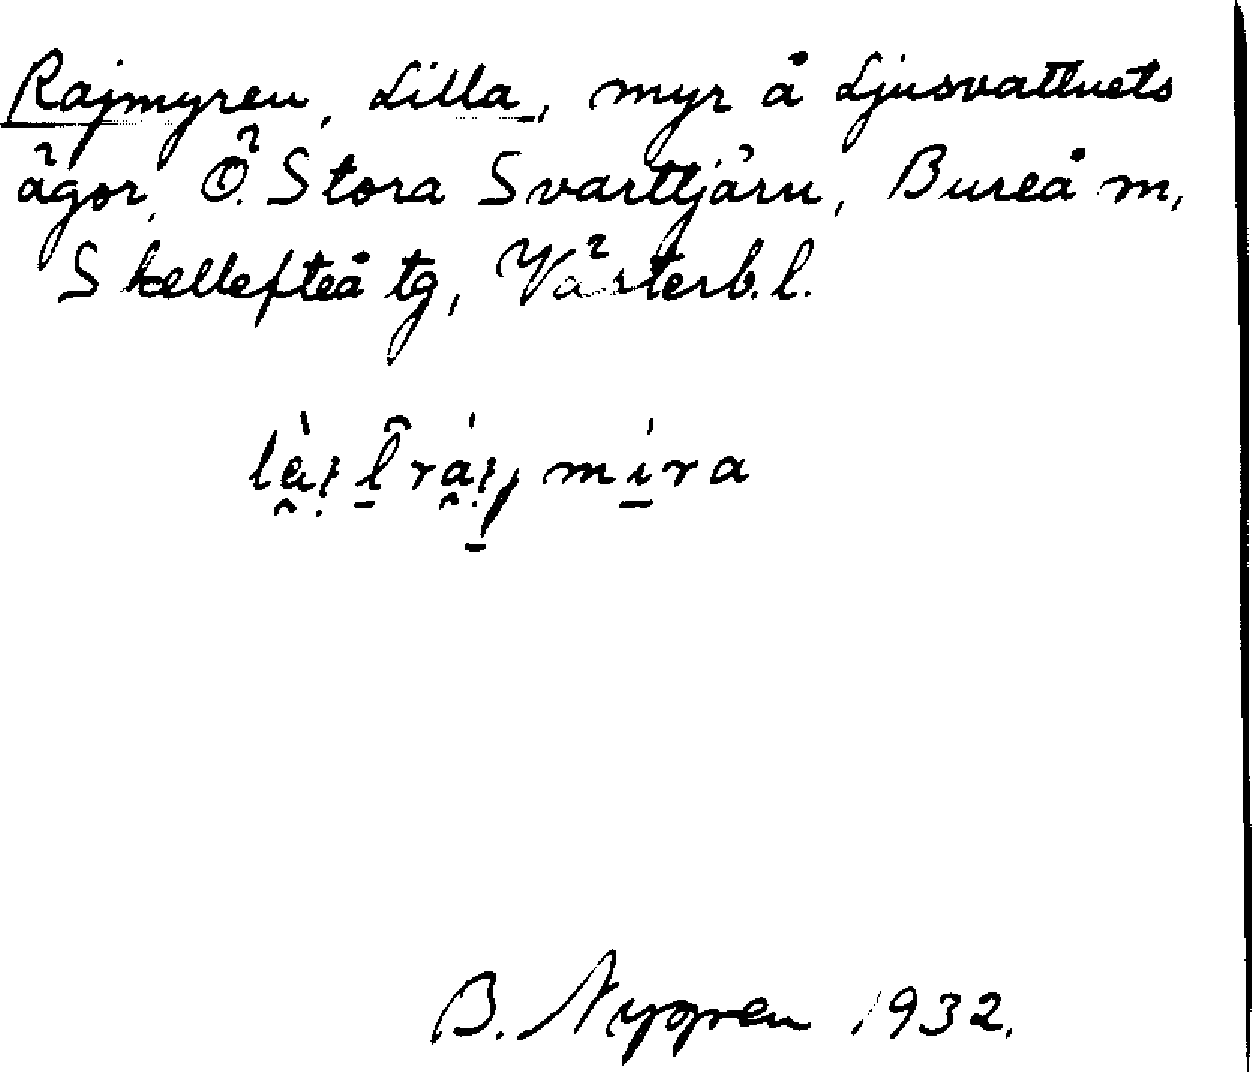 Rajmyren, Lilla, myr å Ljusvattnets
ägor, Ö. Stora Svarttjärn, Bureå m,
Skellefteå tg, Västerb. l.
B. Nygren 1932.